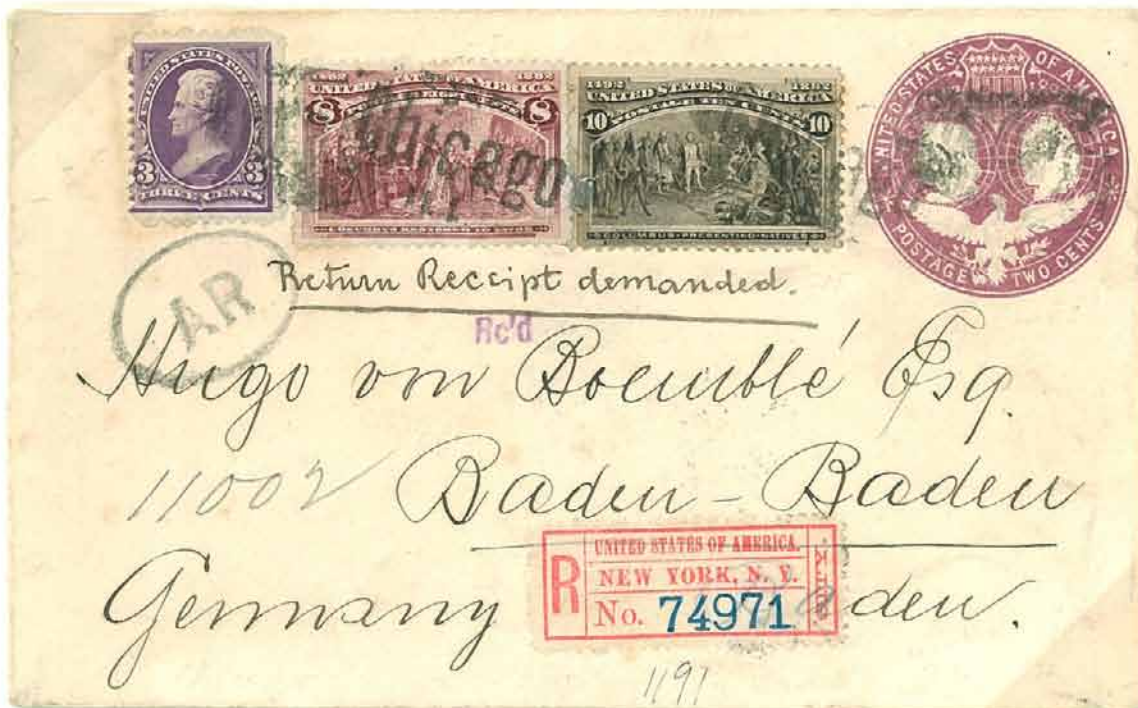 UNITED STATES POSTAGE
3 3
THREE CENTS
1492 1892
UNITED STATES OF AMERICA
8 8
COLUMBUS RESTORED TO FAVOR
1492 1892
UNITED STATES OF AMERICA
POSTAGE TEN CENTS
10 10
COLUMBUS PRESENTING NATIVES
UNITED STATES OF AMERICA
POSTAGE TWO CENTS
Chicago
AR
Return Receipt demanded.
Rc'd
Hugo von Boemblé Esq.
11002 Baden-Baden
Germany Baden.
R
UNITED STATES OF AMERICA.
NEW YORK, N. Y.
No. 74971
1191